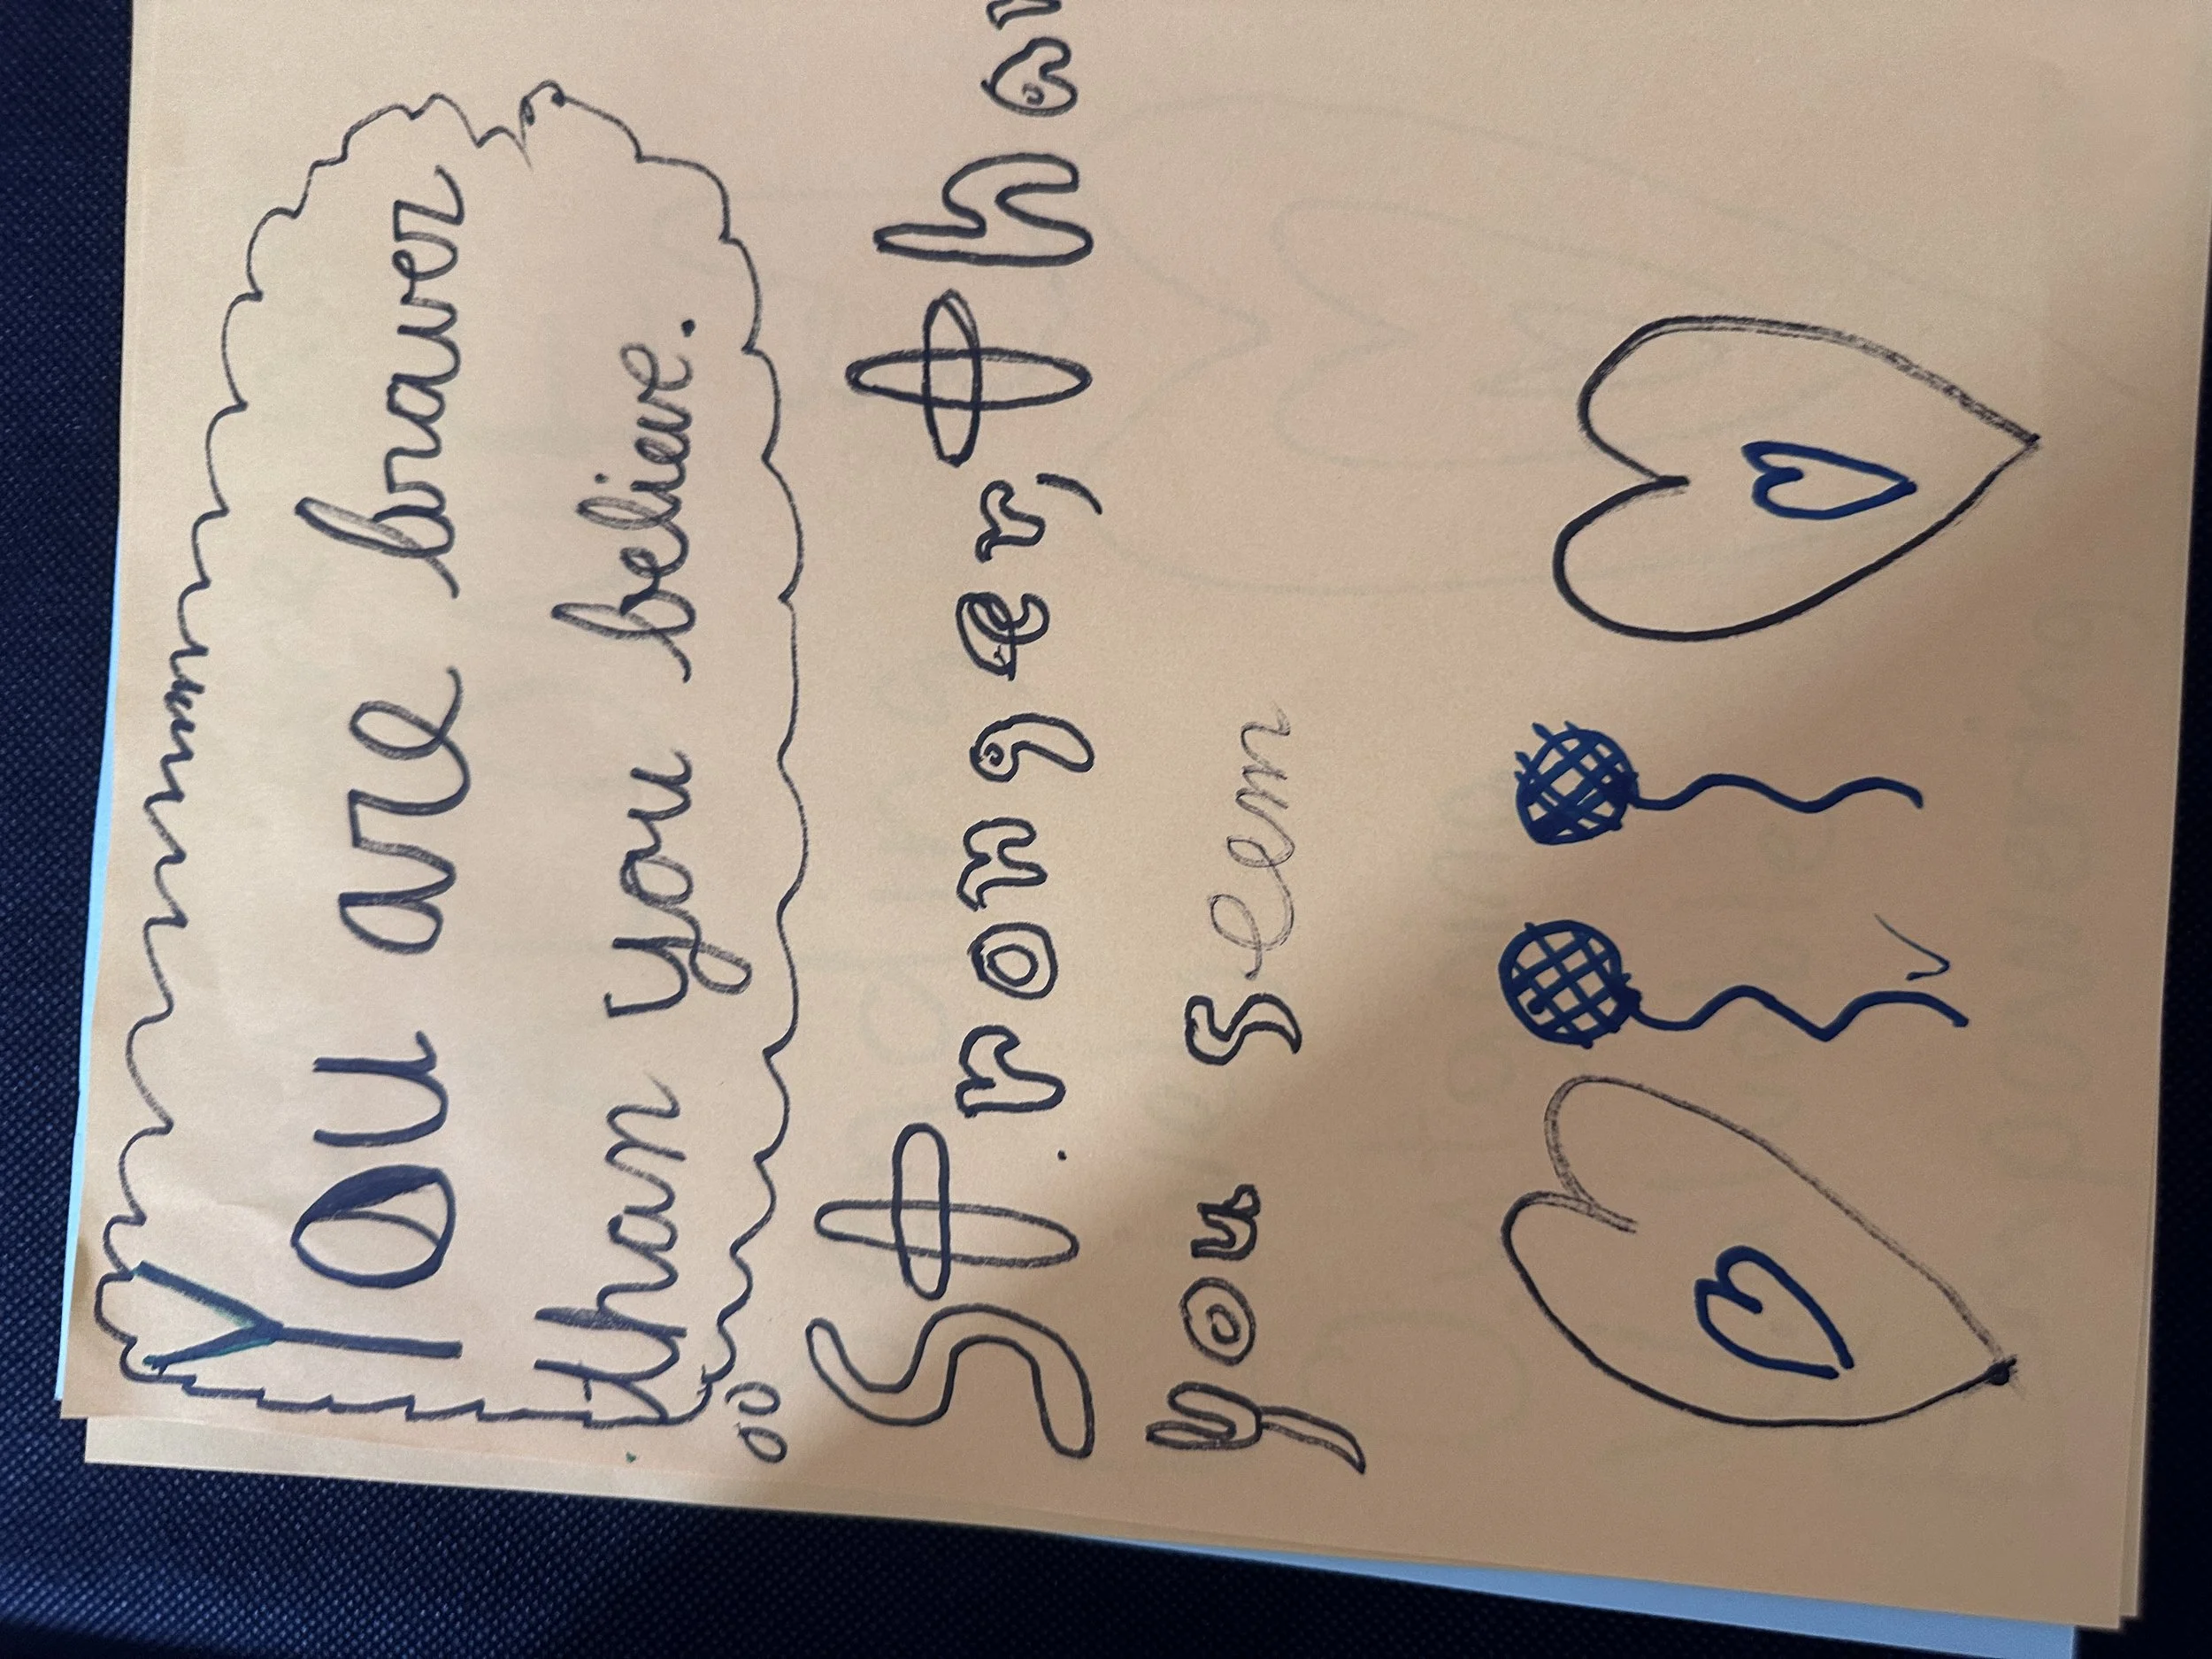 You are braver
than you believe.
Stronger, than
you seem